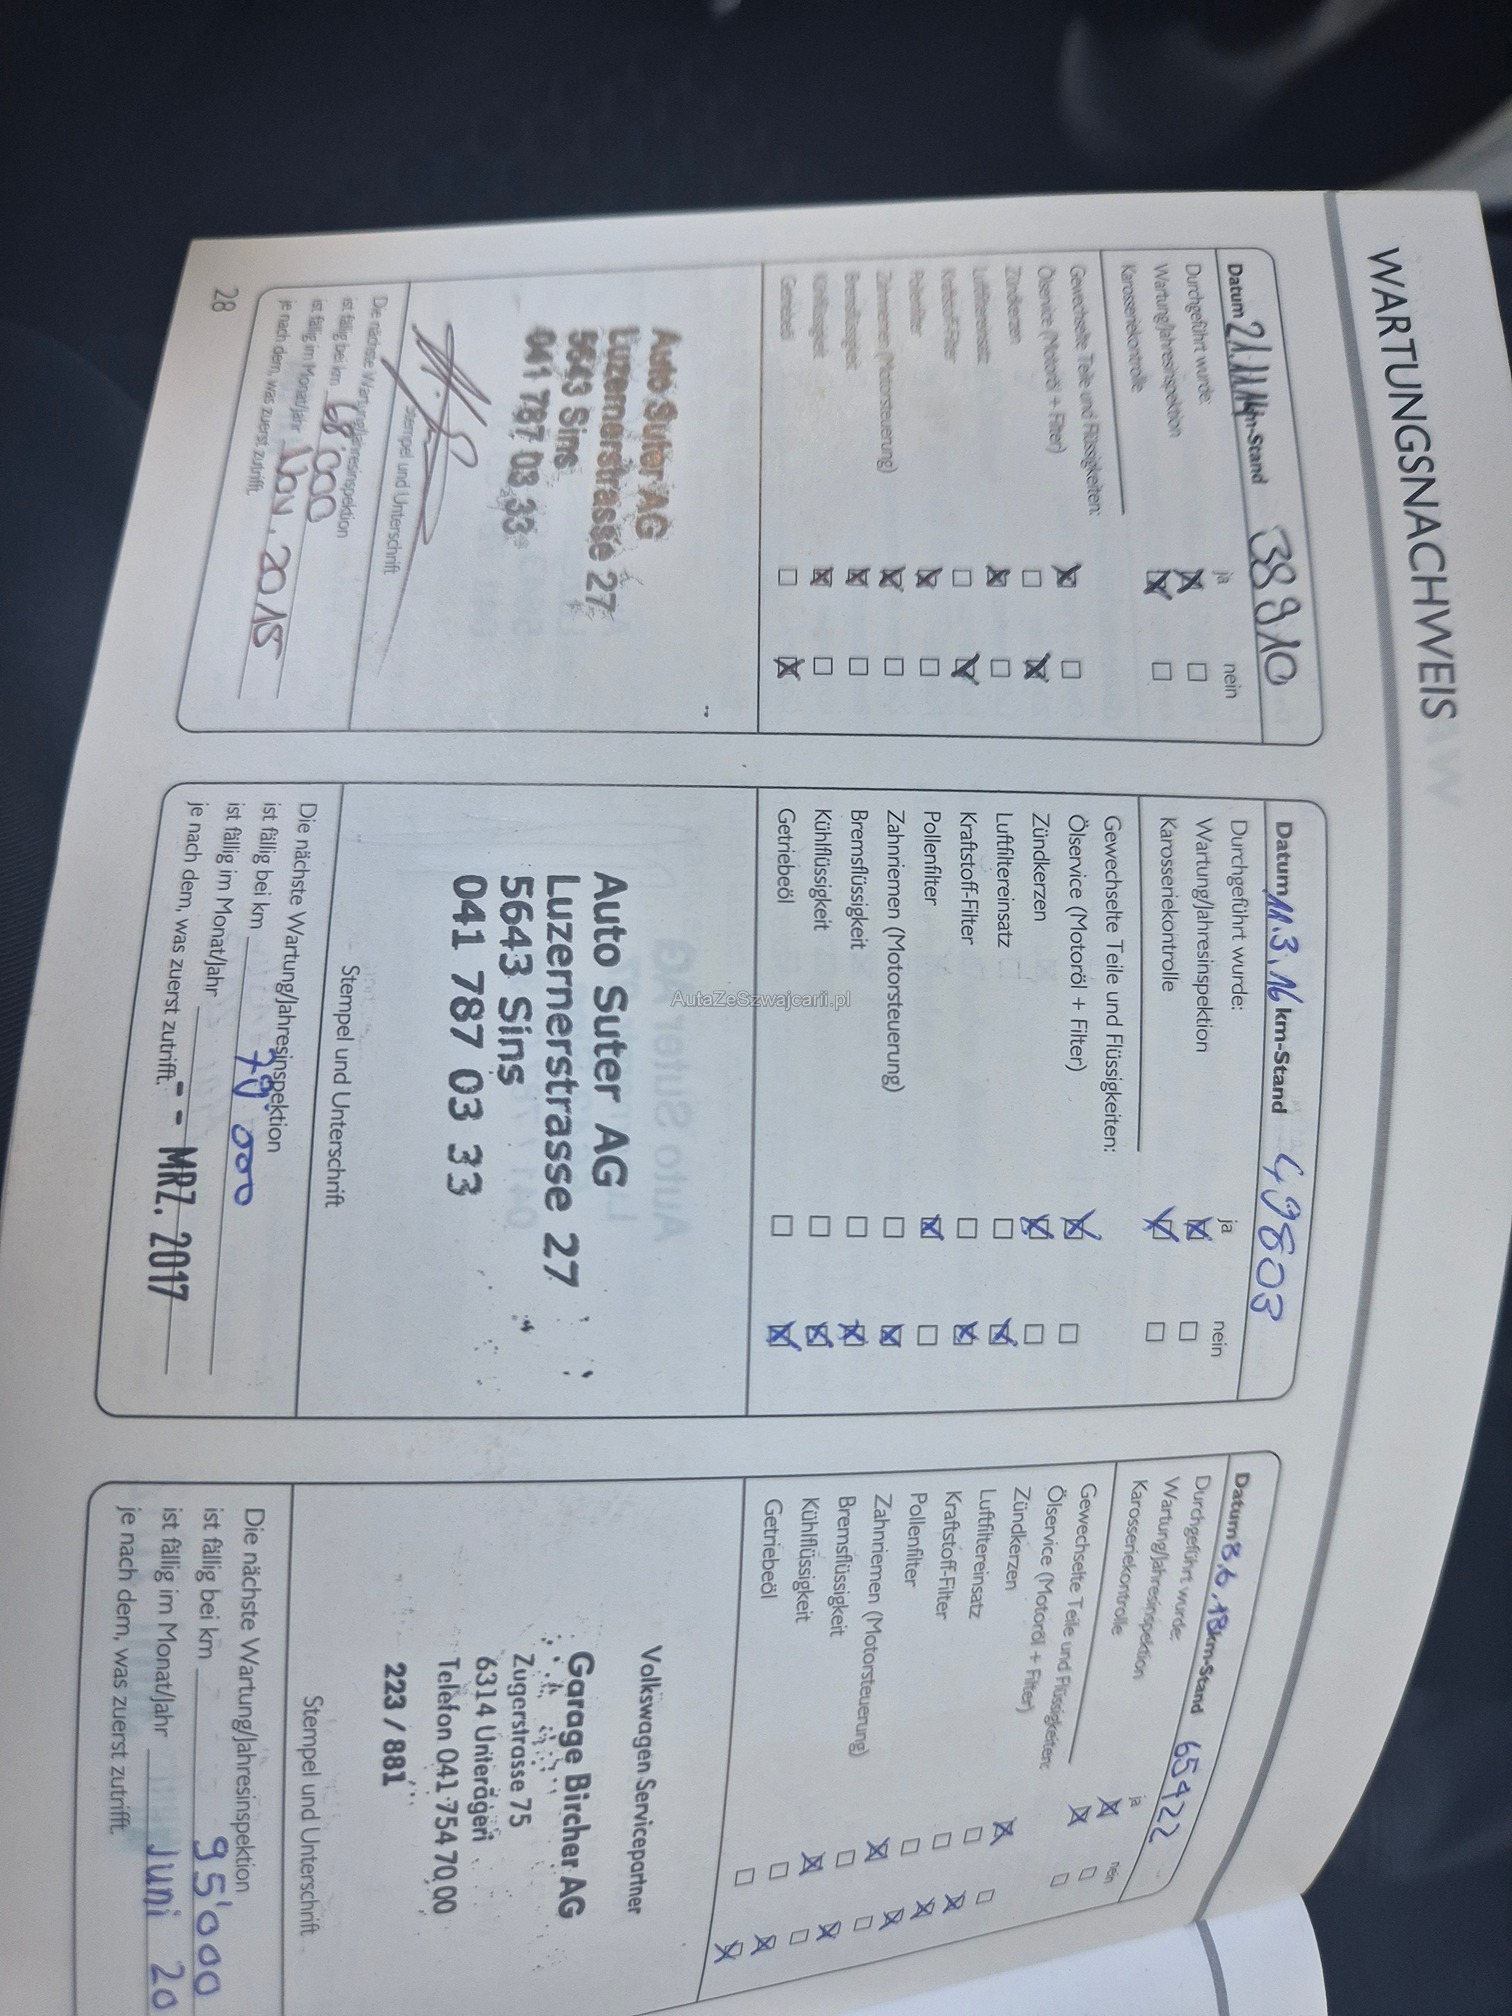 WARTUNGSNACHWEIS
Datum 21.11.14 km-Stand 38910
Durchgeführt wurde: ja nein
Wartung/Jahresinspektion
Karosseriekontrolle
Gewechselte Teile und Flüssigkeiten:
Ölservice (Motoröl + Filter)
Zündkerzen
Luftfiltereinsatz
Kraftstoff-Filter
Pollenfilter
Zahnriemen (Motorsteuerung)
Bremsflüssigkeit
Kühlflüssigkeit
Getriebeöl
Auto Suter AG
Luzernerstrasse 27
5643 Sins
041 787 03 33
Stempel und Unterschrift
Die nächste Wartung/Jahresinspektion
ist fällig bei km 68'000
ist fällig im Monat/Jahr Nov. 2015
je nach dem, was zuerst zutrifft.
28
Datum 11.3.16 km-Stand 49803
Durchgeführt wurde: ja nein
Wartung/Jahresinspektion
Karosseriekontrolle
Gewechselte Teile und Flüssigkeiten:
Ölservice (Motoröl + Filter)
Zündkerzen
Luftfiltereinsatz
Kraftstoff-Filter
Pollenfilter
Zahnriemen (Motorsteuerung)
Bremsflüssigkeit
Kühlflüssigkeit
Getriebeöl
Auto Suter AG
Luzernerstrasse 27
5643 Sins
041 787 03 33
Stempel und Unterschrift
Die nächste Wartung/Jahresinspektion
ist fällig bei km 79'000
ist fällig im Monat/Jahr
je nach dem, was zuerst zutrifft. -- MRZ. 2017
Datum 8.6.18 km-Stand 65422
Durchgeführt wurde: ja nein
Wartung/Jahresinspektion
Karosseriekontrolle
Gewechselte Teile und Flüssigkeiten:
Ölservice (Motoröl + Filter)
Zündkerzen
Luftfiltereinsatz
Kraftstoff-Filter
Pollenfilter
Zahnriemen (Motorsteuerung)
Bremsflüssigkeit
Kühlflüssigkeit
Getriebeöl
Volkswagen Servicepartner
Garage Bircher AG
Zugerstrasse 75
6314 Unterägeri
Telefon 041 754 70 00
223 / 881
Stempel und Unterschrift
Die nächste Wartung/Jahresinspektion
ist fällig bei km 95'000
ist fällig im Monat/Jahr Juni 20
je nach dem, was zuerst zutrifft.
AutaZeSzwajcarii.pl